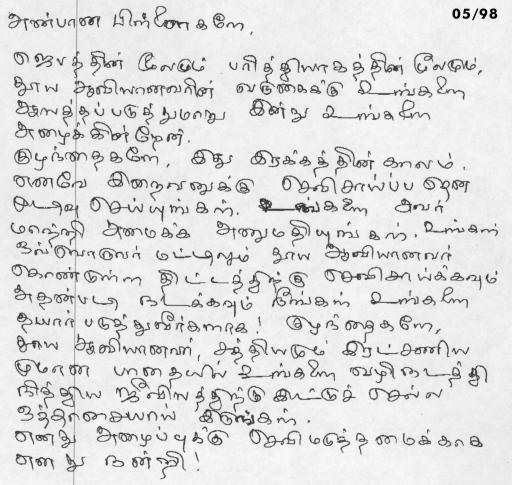 05/98
அன்பான பிள்ளைகளே,
ஜெபத்தின் மூலமும் பரித்தியாகத்தின் மூலமும்,
தூய ஆவியானவரின் வருகைக்கு உங்களை
ஆயத்தப்படுத்துமாறு இன்று உங்களை
அழைக்கின்றேன்.
குழந்தைகளே, இது இரக்கத்தின் காலம்.
எனவே இறைவனுக்கு செவிசாய்ப்ப தென
முடிவு செய்யுங்கள். உங்களை அவர்
மாற்றி அமைக்க அனுமதியுங்கள். உங்கள்
ஒவ்வொருவர் மட்டிலும் தூய ஆவியானவர்
கொண்டுள்ள திட்டத்திற்கு செவிசாய்க்கவும்
அதன்படி நடக்கவும் நீங்கள் உங்களை
தயார் படுத்துவீர்களாக! குழந்தைகளே,
தூய ஆவியானவர், சத்தியமும் இரட்சணிய
முமான பாதையில் உங்களை வழிநடத்தி
நித்திய ஜீவியத்துக்கு கூட்டிச் செல்ல
உத்தாசையாய் இருங்கள்.
எனது அழைப்புக்கு செவிமடுத்தமைக்காக
எனது நன்றி!